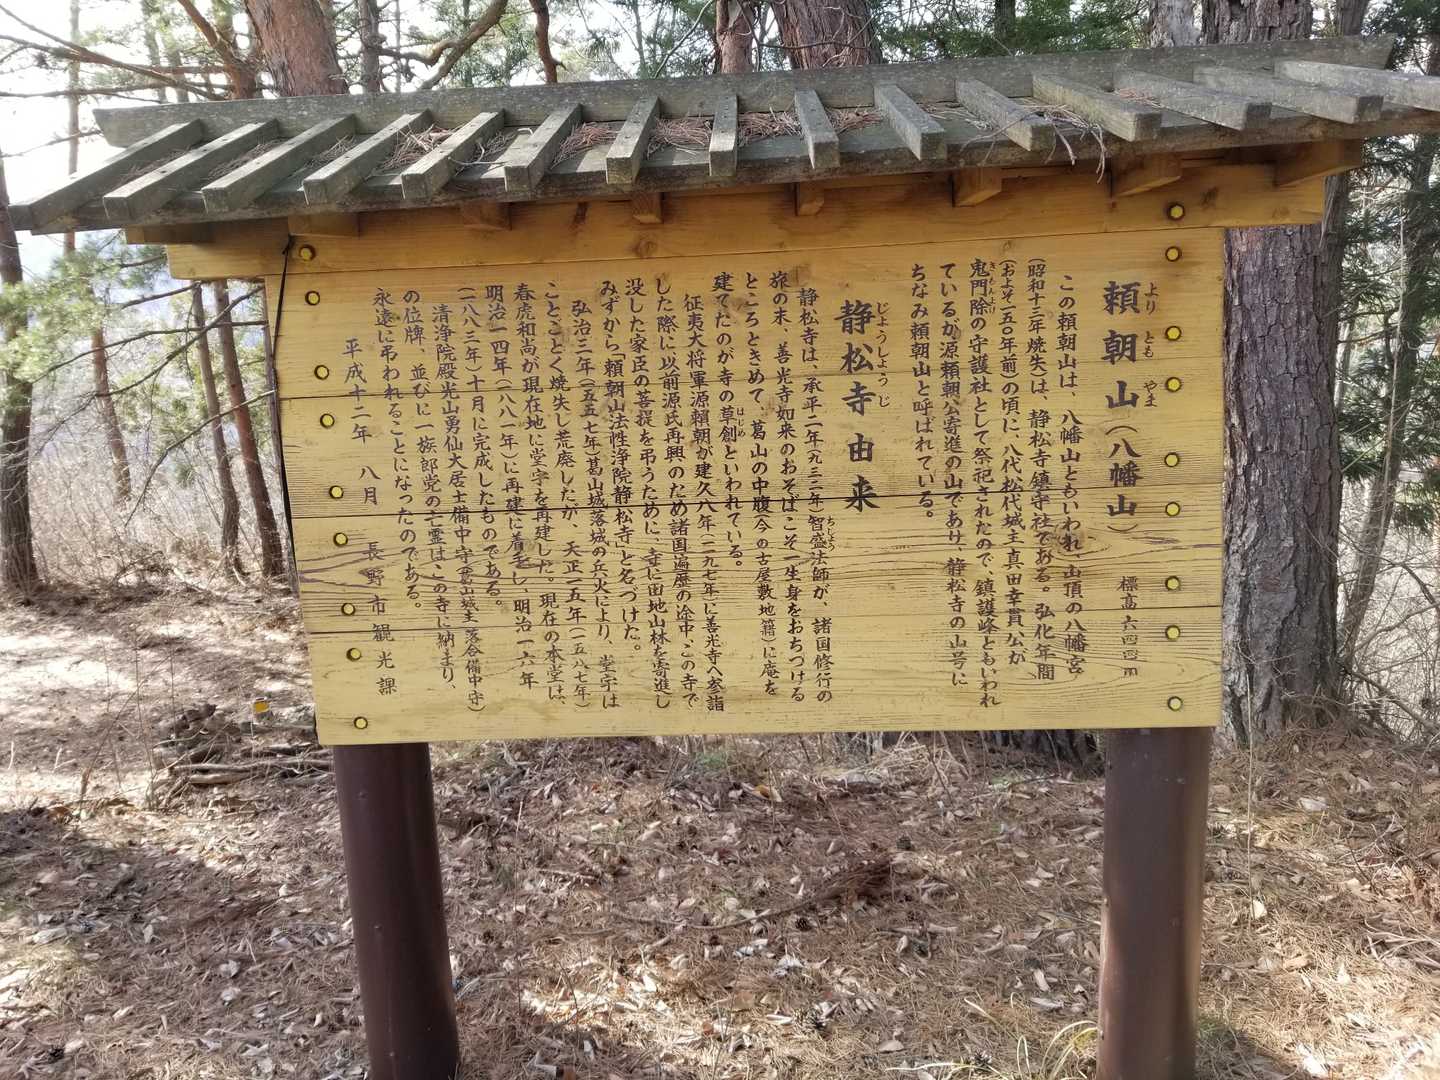 頼朝山(八幡山)
より とも やま
標高六四四m
この頼朝山は、八幡山ともいわれ、山頂の八幡宮
(昭和十三年焼失)は、静松寺鎮守社である。弘化年間
(およそ一五〇年前)の頃に、八代松代城主真田幸貫公が
鬼門除の守護社として祭祀されたので、鎮護峰ともいわれ
きもんより
ているが源頼朝公寄進の山であり、静松寺の山号に
ちなみ頼朝山と呼ばれている。
静松寺由来
じょうしょうじ
静松寺は、承平二年(九三二年)智盛法師が、諸国修行の
ちしょう
旅の末、善光寺如来のおそばこそ一生身をおちつける
ところときめて、葛山の中腹(今の古屋敷地籍)に庵を
建てたのが寺の草創といわれている。
はじめ
征夷大将軍源頼朝が建久八年(一一九七年)に善光寺へ参詣
した際に、以前源氏再興のため諸国遍歴の途中、この寺で
没した家臣の菩提を弔うために、寺に田地山林を寄進し
みずから「頼朝山法性浄院静松寺」と名づけた。
弘治三年(一五五七年)葛山城落城の兵火により、堂宇は
ことごとく焼失し荒廃したが、天正一五年(一五八七年)
春虎和尚が現在地に堂宇を再建した。現在の本堂は、
明治一四年(一八八一年)に再建に着手し、明治一六年
(一八八三年)十月に完成したものである。
清浄院殿光山勇仙大居士備中守(葛山城主落合備中守)
の位牌、並びに一族郎党の亡霊はこの寺に納まり、
永遠に弔われることになったのである。
平成十二年 八月 長野市観光課